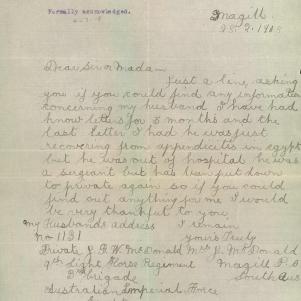 Formally acknowledged.
Magill
Dear Sir or Madam
Just a line, asking
you if you could find any information
concerning my husband I have had
know letters for 8 months and the
last letter I had he was just
recovering from appendicitis in egypt
but he was out of hospital he was
a sergeant but has been put down
to private again so if you could
find out anything for me I would
be very thankful to you
My Husbands address I remain
No 1131 yours Truly
Private J. F. W. McDonald Mrs J. McDonald
9th Light Horse Regiment Magill P.O
3rd Brigade South Aus
Australian Imperial Force